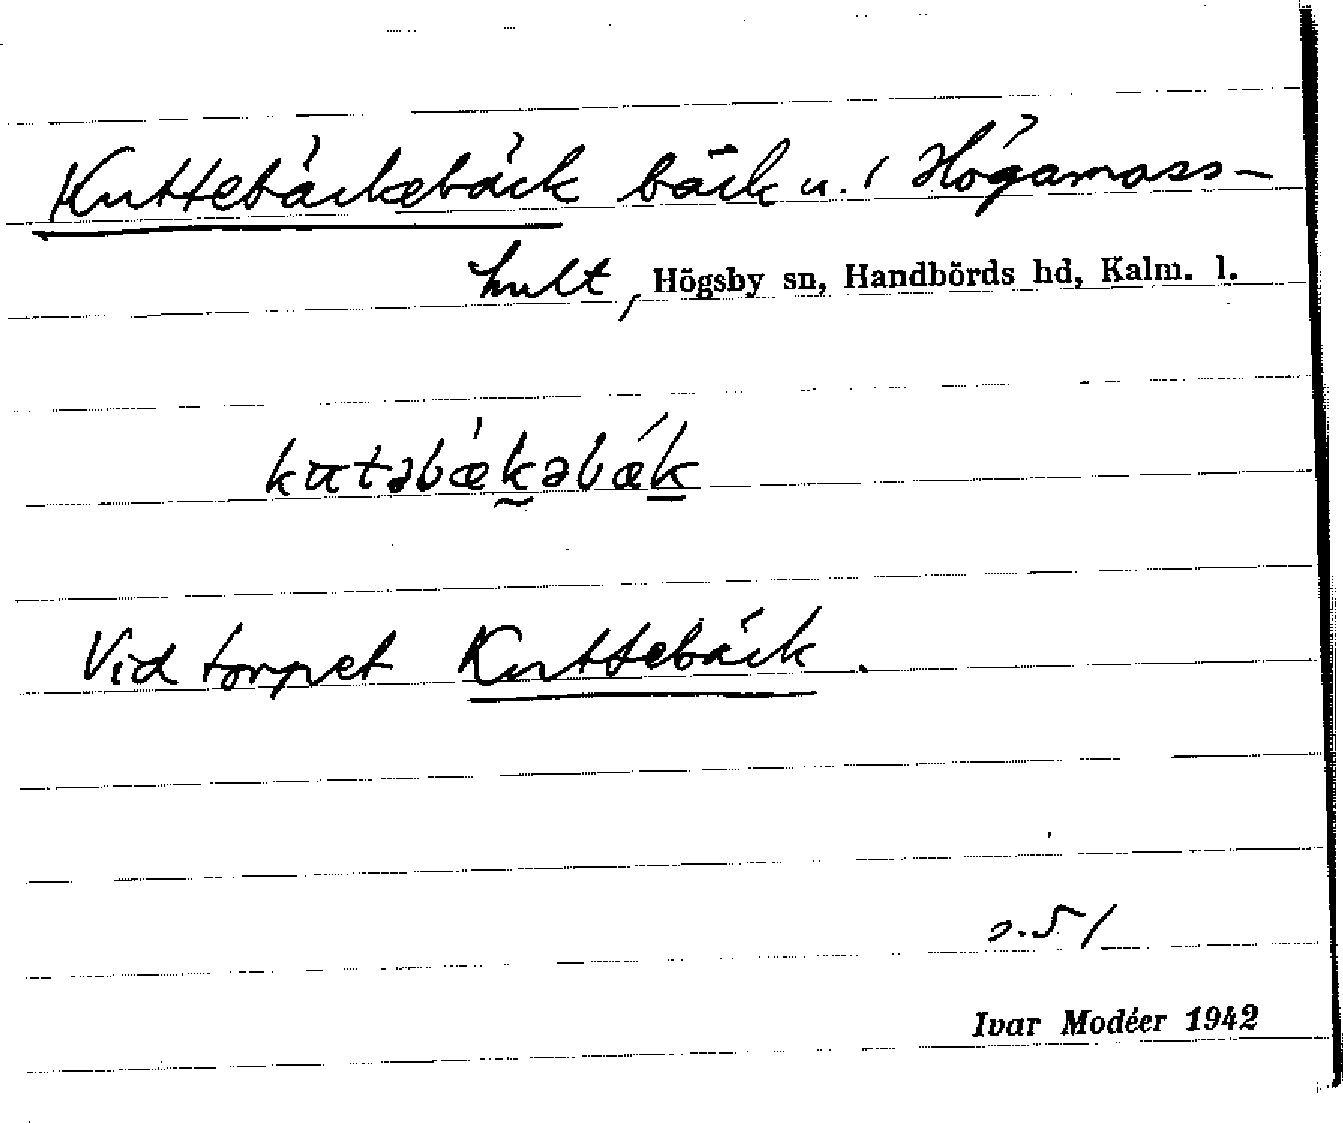 Kuttebäckebäck bäck u. i Högamoss-
hult, Högsby sn, Handbörds hd, Kalm. l.
kutəbækəbæk
Vid torpet Kuttebäck.
s. 51
Ivar Modéer 1942